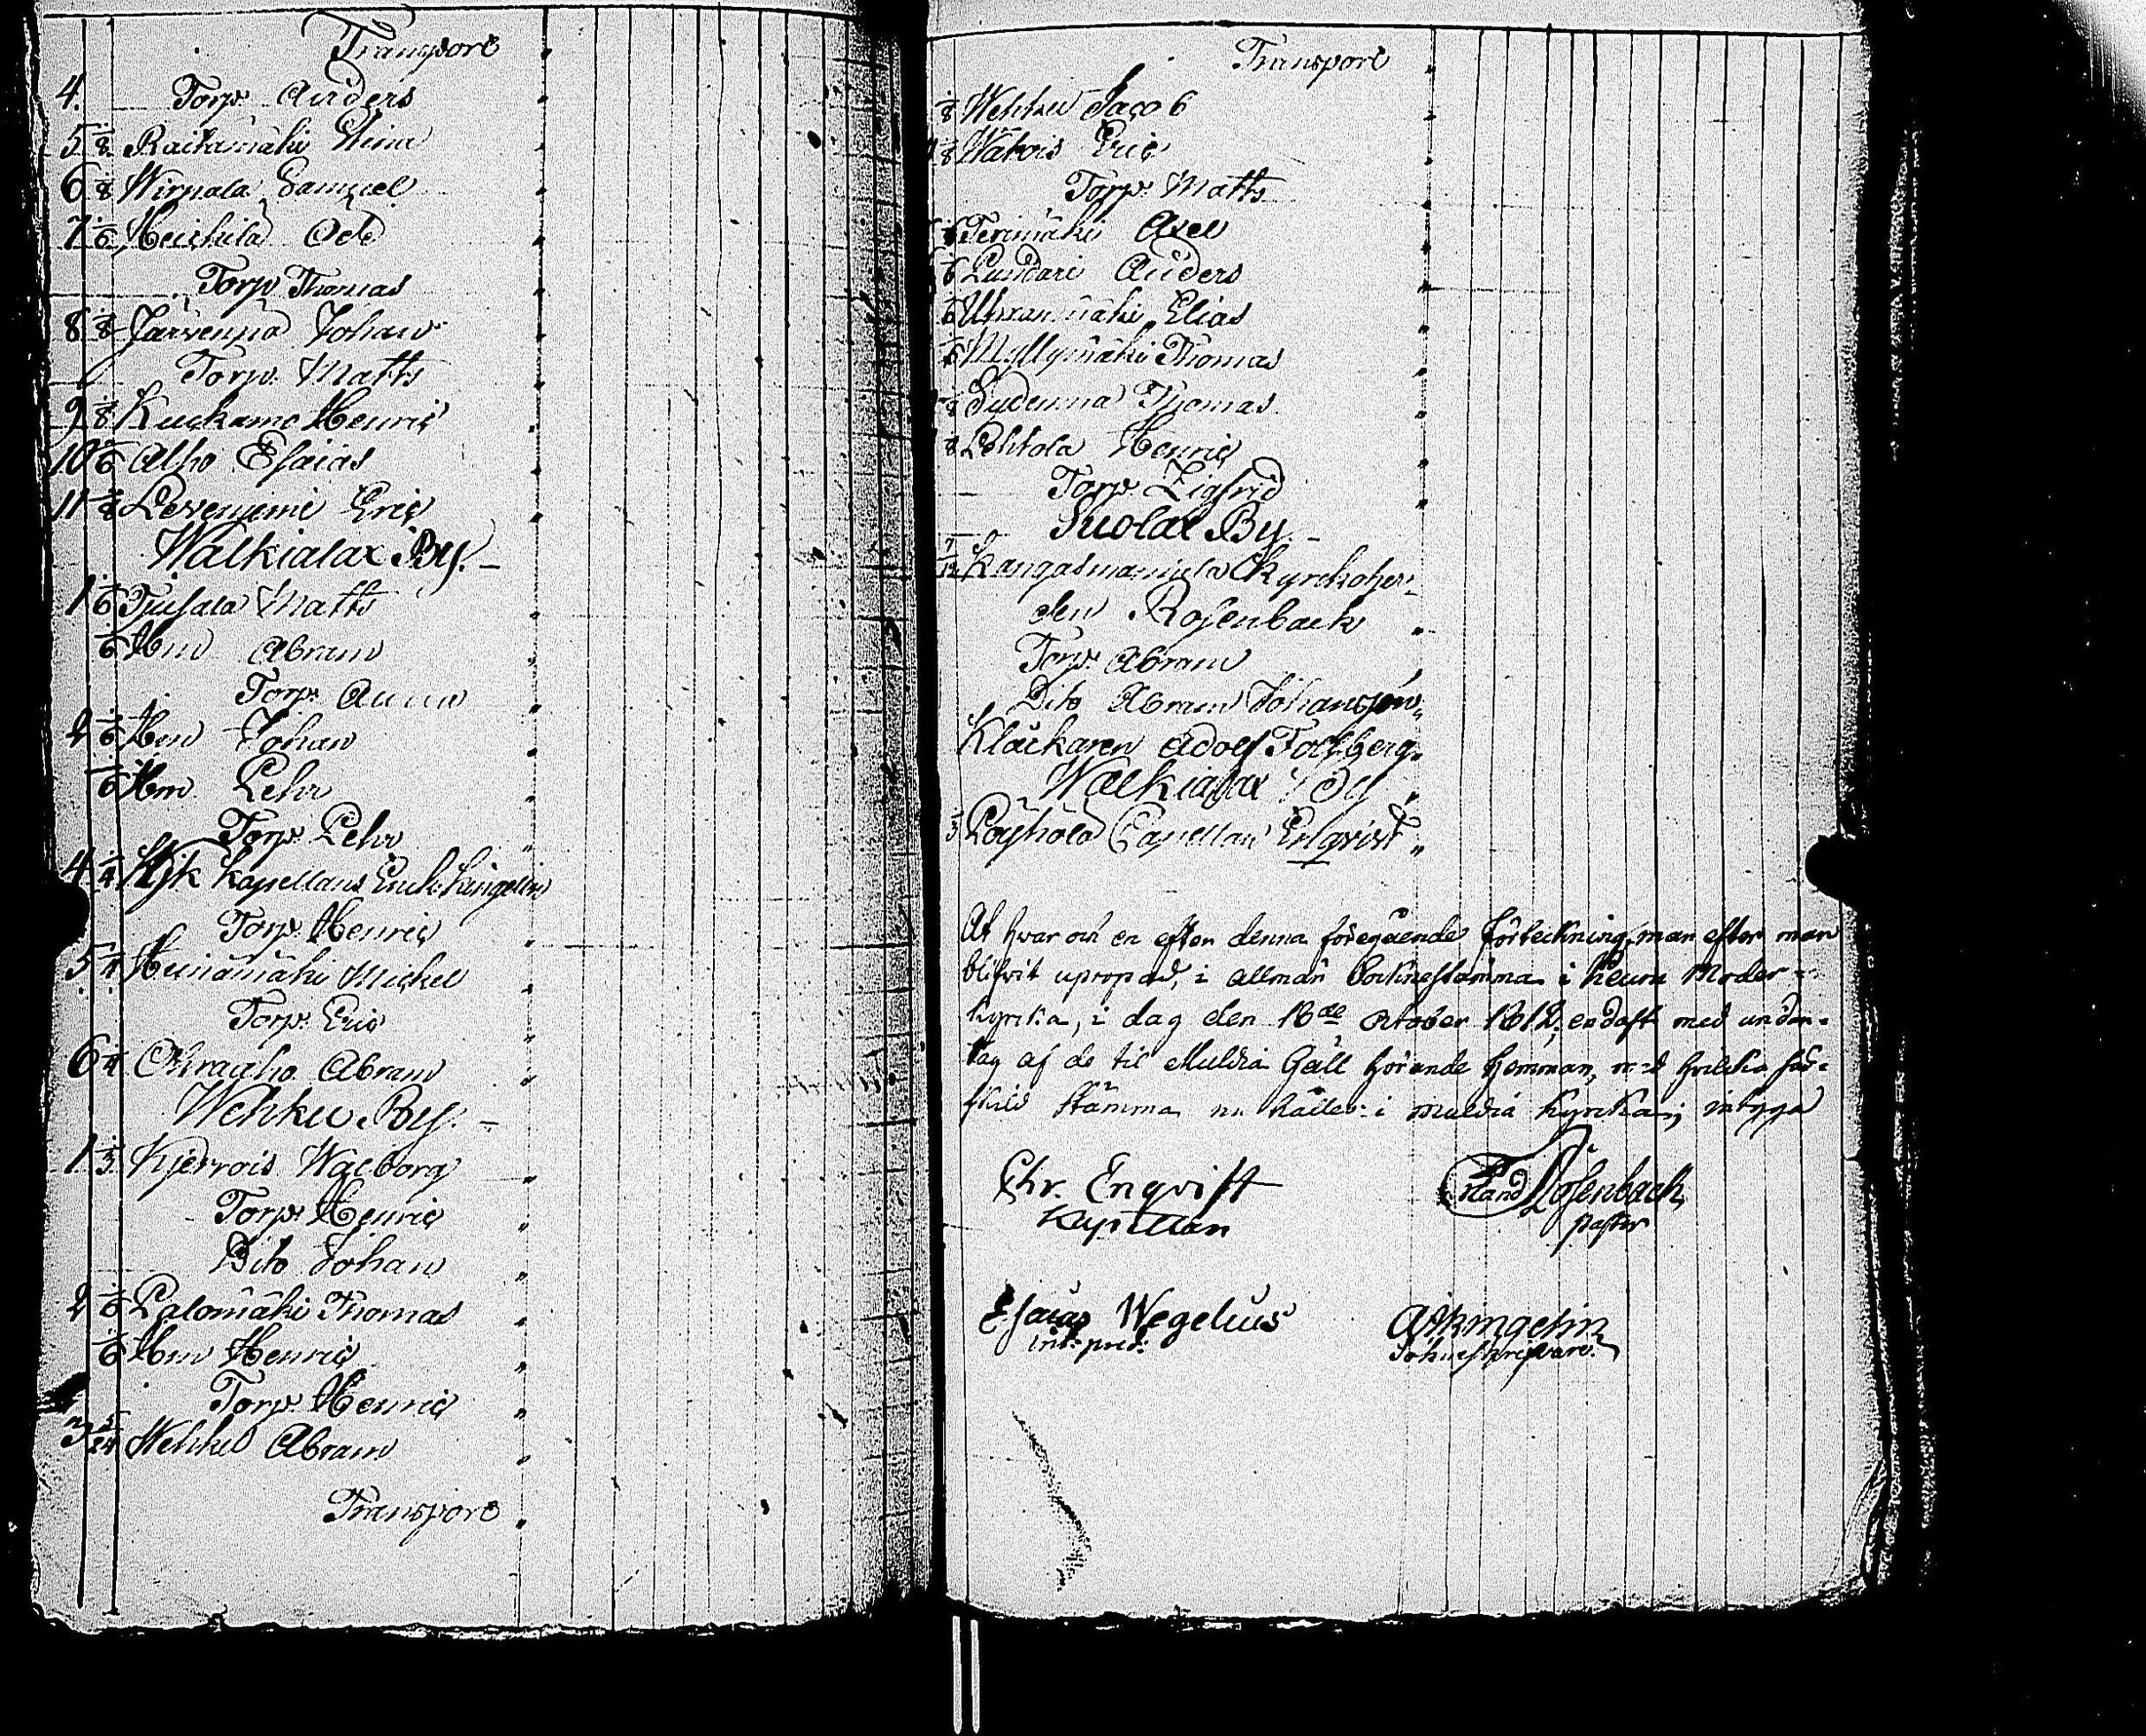 Transport
4. Torp. Anders
5 1/8 Raitamäki Stina
6 1/8 Wirnala Samuel
7 1/6 Heickilä
Torp. Thomas
8 1/8 Järvenpä Johan
Torp. Matts
9 1/8 Kuckamo Henric
10 1/6 Alho Esaias
11 1/8 Leveniemi Eric
Walkialax By.
1 1/6 Tiusala Matts
1/6 Hm Abram
Torp. Anna
2 1/6 Hm Johan
1/6 Hm Pehr
Torp. Pehr
4 1/4 Kapellans Enck. Kingelin
Torp. Henric
5 Heinämäki Mickel
Torp. Eric
6 Abram
Wehku By.
1 1/3 Walborg
Torp. Henric
Dito Johan
2 1/6 Palomäki Thomas
1/6 Hm Henric
Torp. Henric
3 5/24 Wehku Abram
Transport
Transport
1/8 Wehku Jacob
1/8 Watois Eric
Torp. Matts
Axel
1/6 Lundari Anders
1/6 Elias
1/6 Myllymäki Thomas
1/8 Sydenma Thomas
1/8 Lehtola Henric
Torp. Zigfrid
Suolax By.
Kangasmannila Kyrckoher-
den Rosenback
Torp. Abram
Dito Abram Johansson
Klåckaren Adolf
Walkialax By
1/3 Löyhölä Capellan Enqvist
At hvar och en efter denna föregående förteckning, man efter man
blifvit upropad, i allmän Socknestämma i Keuru Moder-
kyrcka, i dag den 18de October 1812, endast med undan-
tag af de til Muldia Gäll hörande Hemman, med hvilka sär-
skild Stämma nu hålles i Muldia Kyrcka; intyga
Chr. Enqvist
Kapellan
Erland Rosenback
Pastor
Esaias Wegelius
Kingelin